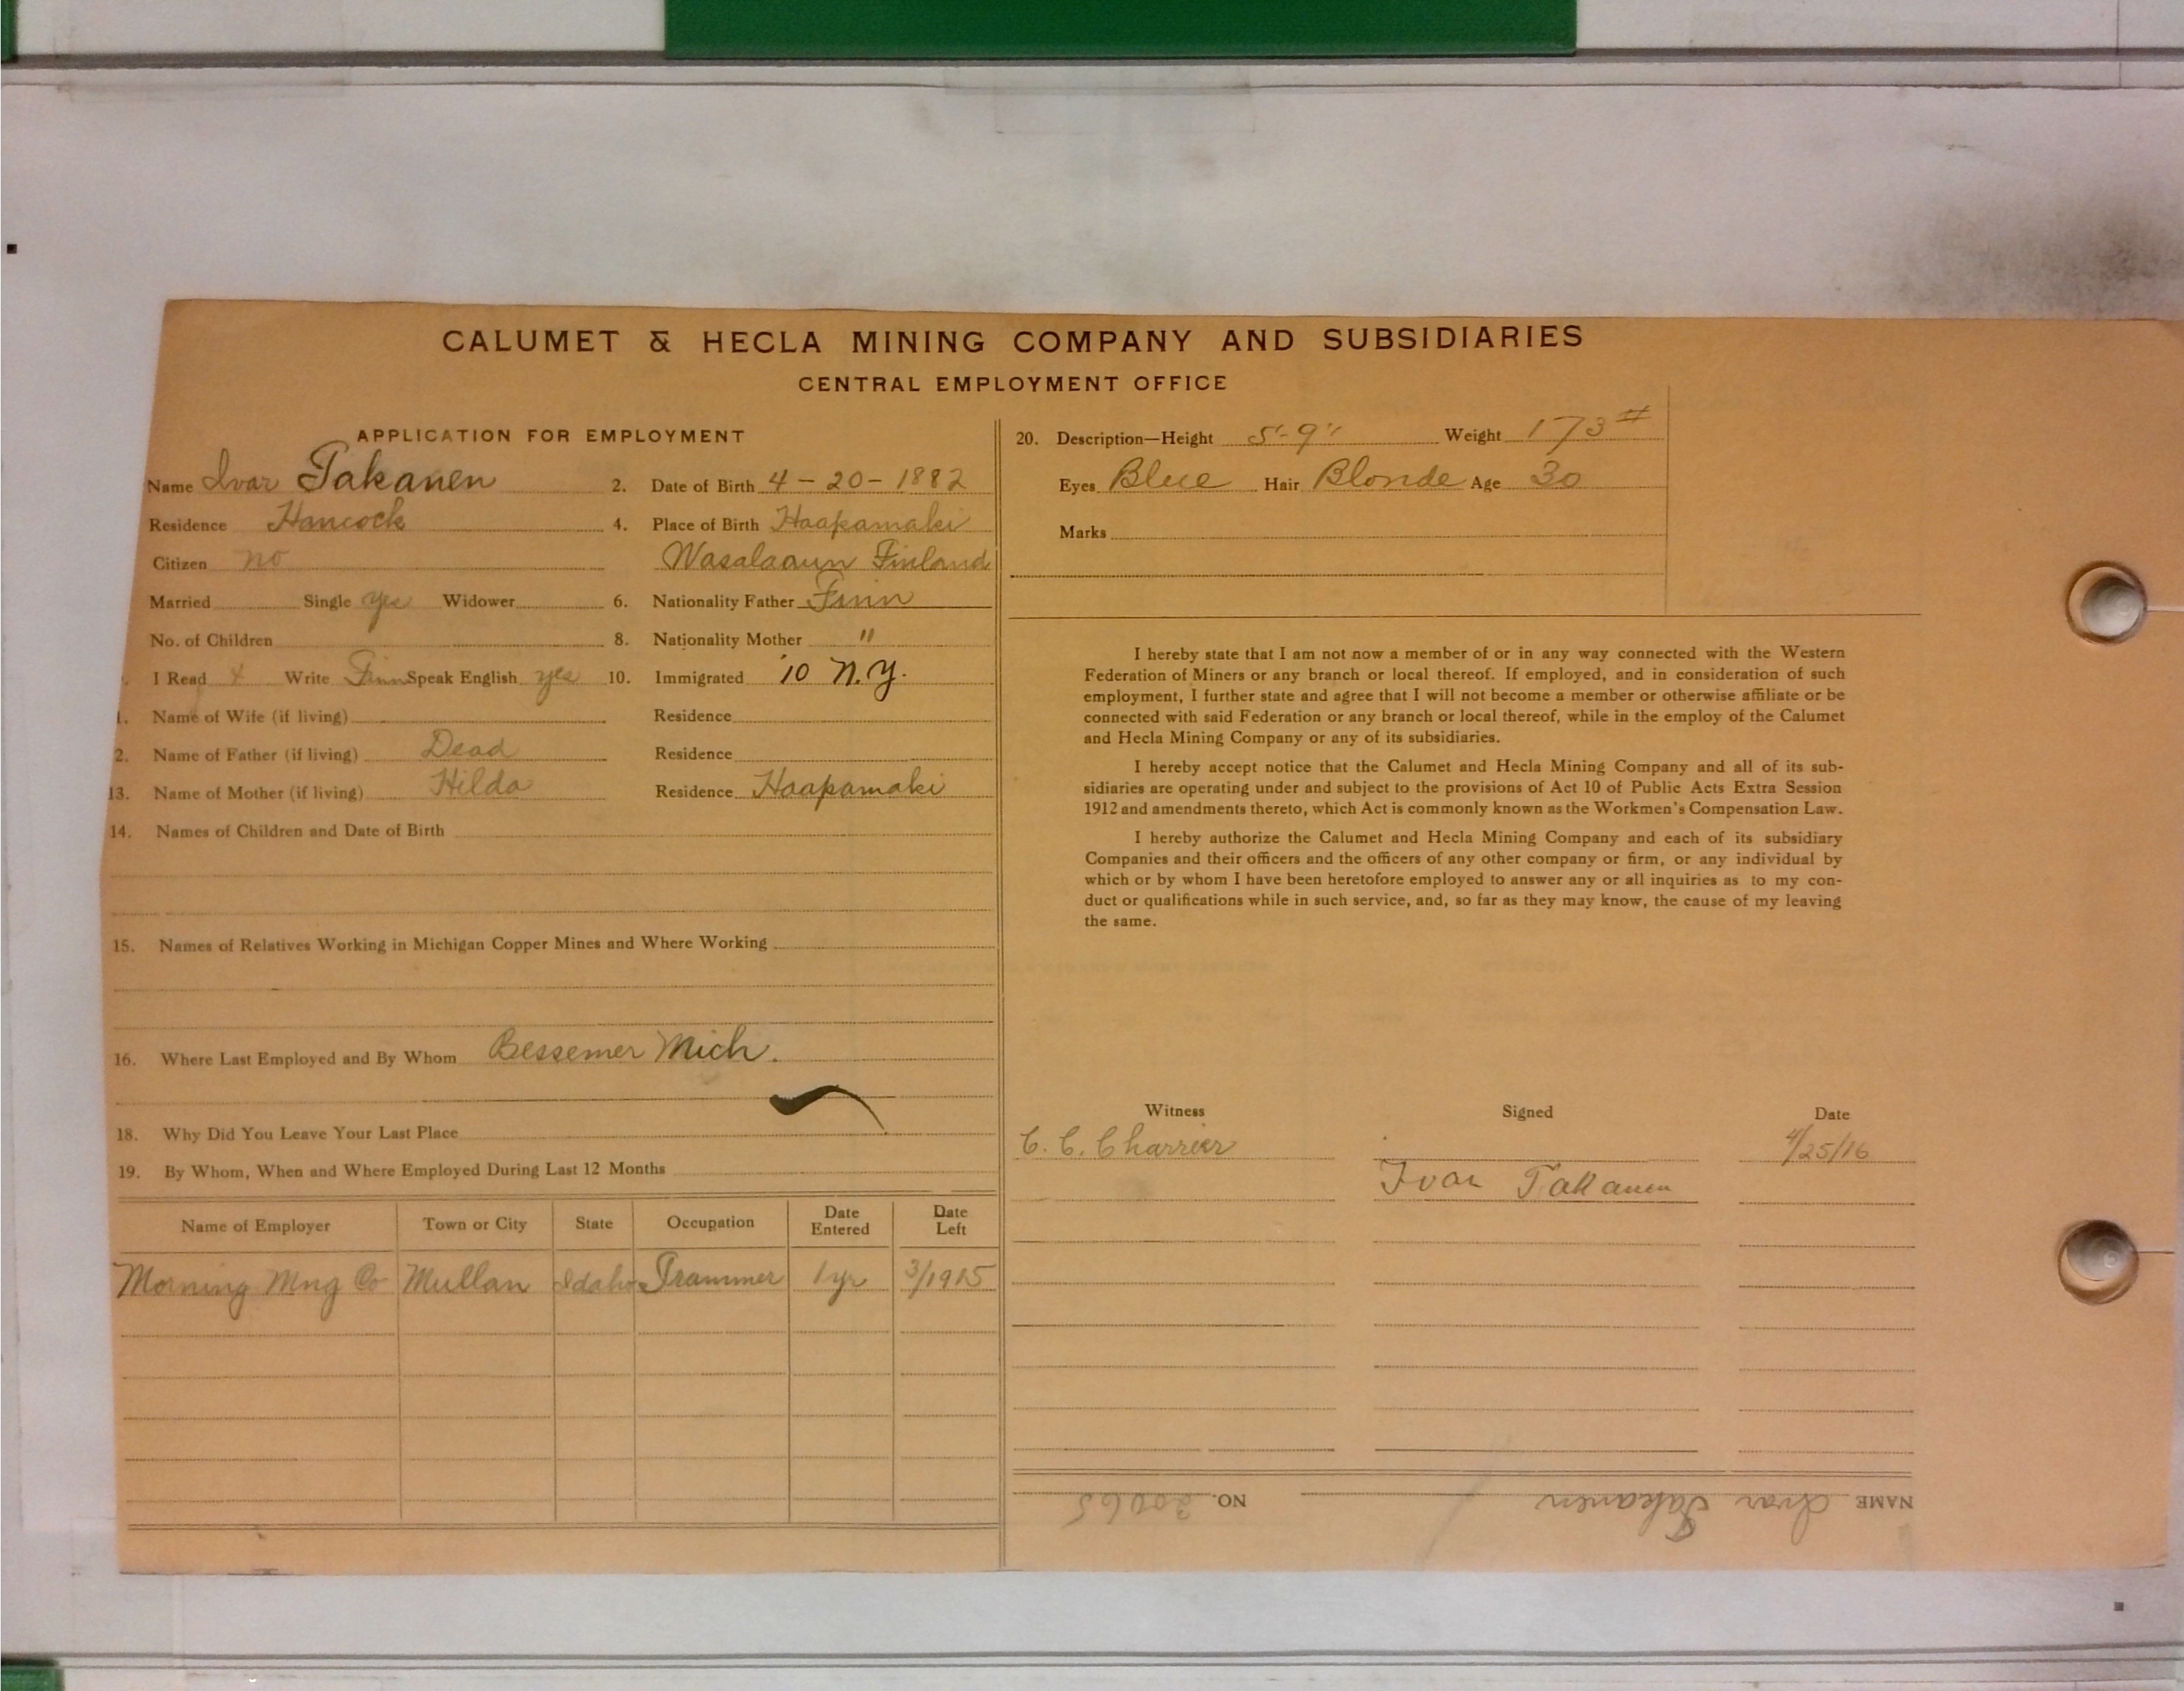 CALUMET & HECLA MINING COMPANY AND SUBSIDIARIES
CENTRAL EMPLOYMENT OFFICE
APPLICATION FOR EMPLOYMENT
Name Ivar Takanen 2. Date of Birth 4-20-1882
Residence Hancock 4. Place of Birth Haapamaki
Citizen no Wasalaaun Finland
Married Single yes Widower 6. Nationality Father Finn
No. of Children 8. Nationality Mother "
I Read & Write Finn Speak English yes 10. Immigrated '10 N.Y.
1. Name of Wife (if living) Residence
2. Name of Father (if living) Dead Residence
13. Name of Mother (if living) Hilda Residence Haapamaki
14. Names of Children and Date of Birth
15. Names of Relatives Working in Michigan Copper Mines and Where Working
16. Where Last Employed and By Whom Bessemer Mich.
18. Why Did You Leave Your Last Place
19. By Whom, When and Where Employed During Last 12 Months
Name of Employer Town or City State Occupation Date Entered Date Left
Morning Mng Co Mullan Idaho Trammer 1 yr 3/1915
20. Description—Height 5'-9" Weight 173#
Eyes Blue Hair Blonde Age 30
Marks
I hereby state that I am not now a member of or in any way connected with the Western
Federation of Miners or any branch or local thereof. If employed, and in consideration of such
employment, I further state and agree that I will not become a member or otherwise affiliate or be
connected with said Federation or any branch or local thereof, while in the employ of the Calumet
and Hecla Mining Company or any of its subsidiaries.
I hereby accept notice that the Calumet and Hecla Mining Company and all of its sub-
sidiaries are operating under and subject to the provisions of Act 10 of Public Acts Extra Session
1912 and amendments thereto, which Act is commonly known as the Workmen's Compensation Law.
I hereby authorize the Calumet and Hecla Mining Company and each of its subsidiary
Companies and their officers and the officers of any other company or firm, or any individual by
which or by whom I have been heretofore employed to answer any or all inquiries as to my con-
duct or qualifications while in such service, and, so far as they may know, the cause of my leaving
the same.
Witness Signed Date
C. C. Charrier 4/25/16
Ivar Takanen
NAME Ivar Takanen NO. 20065